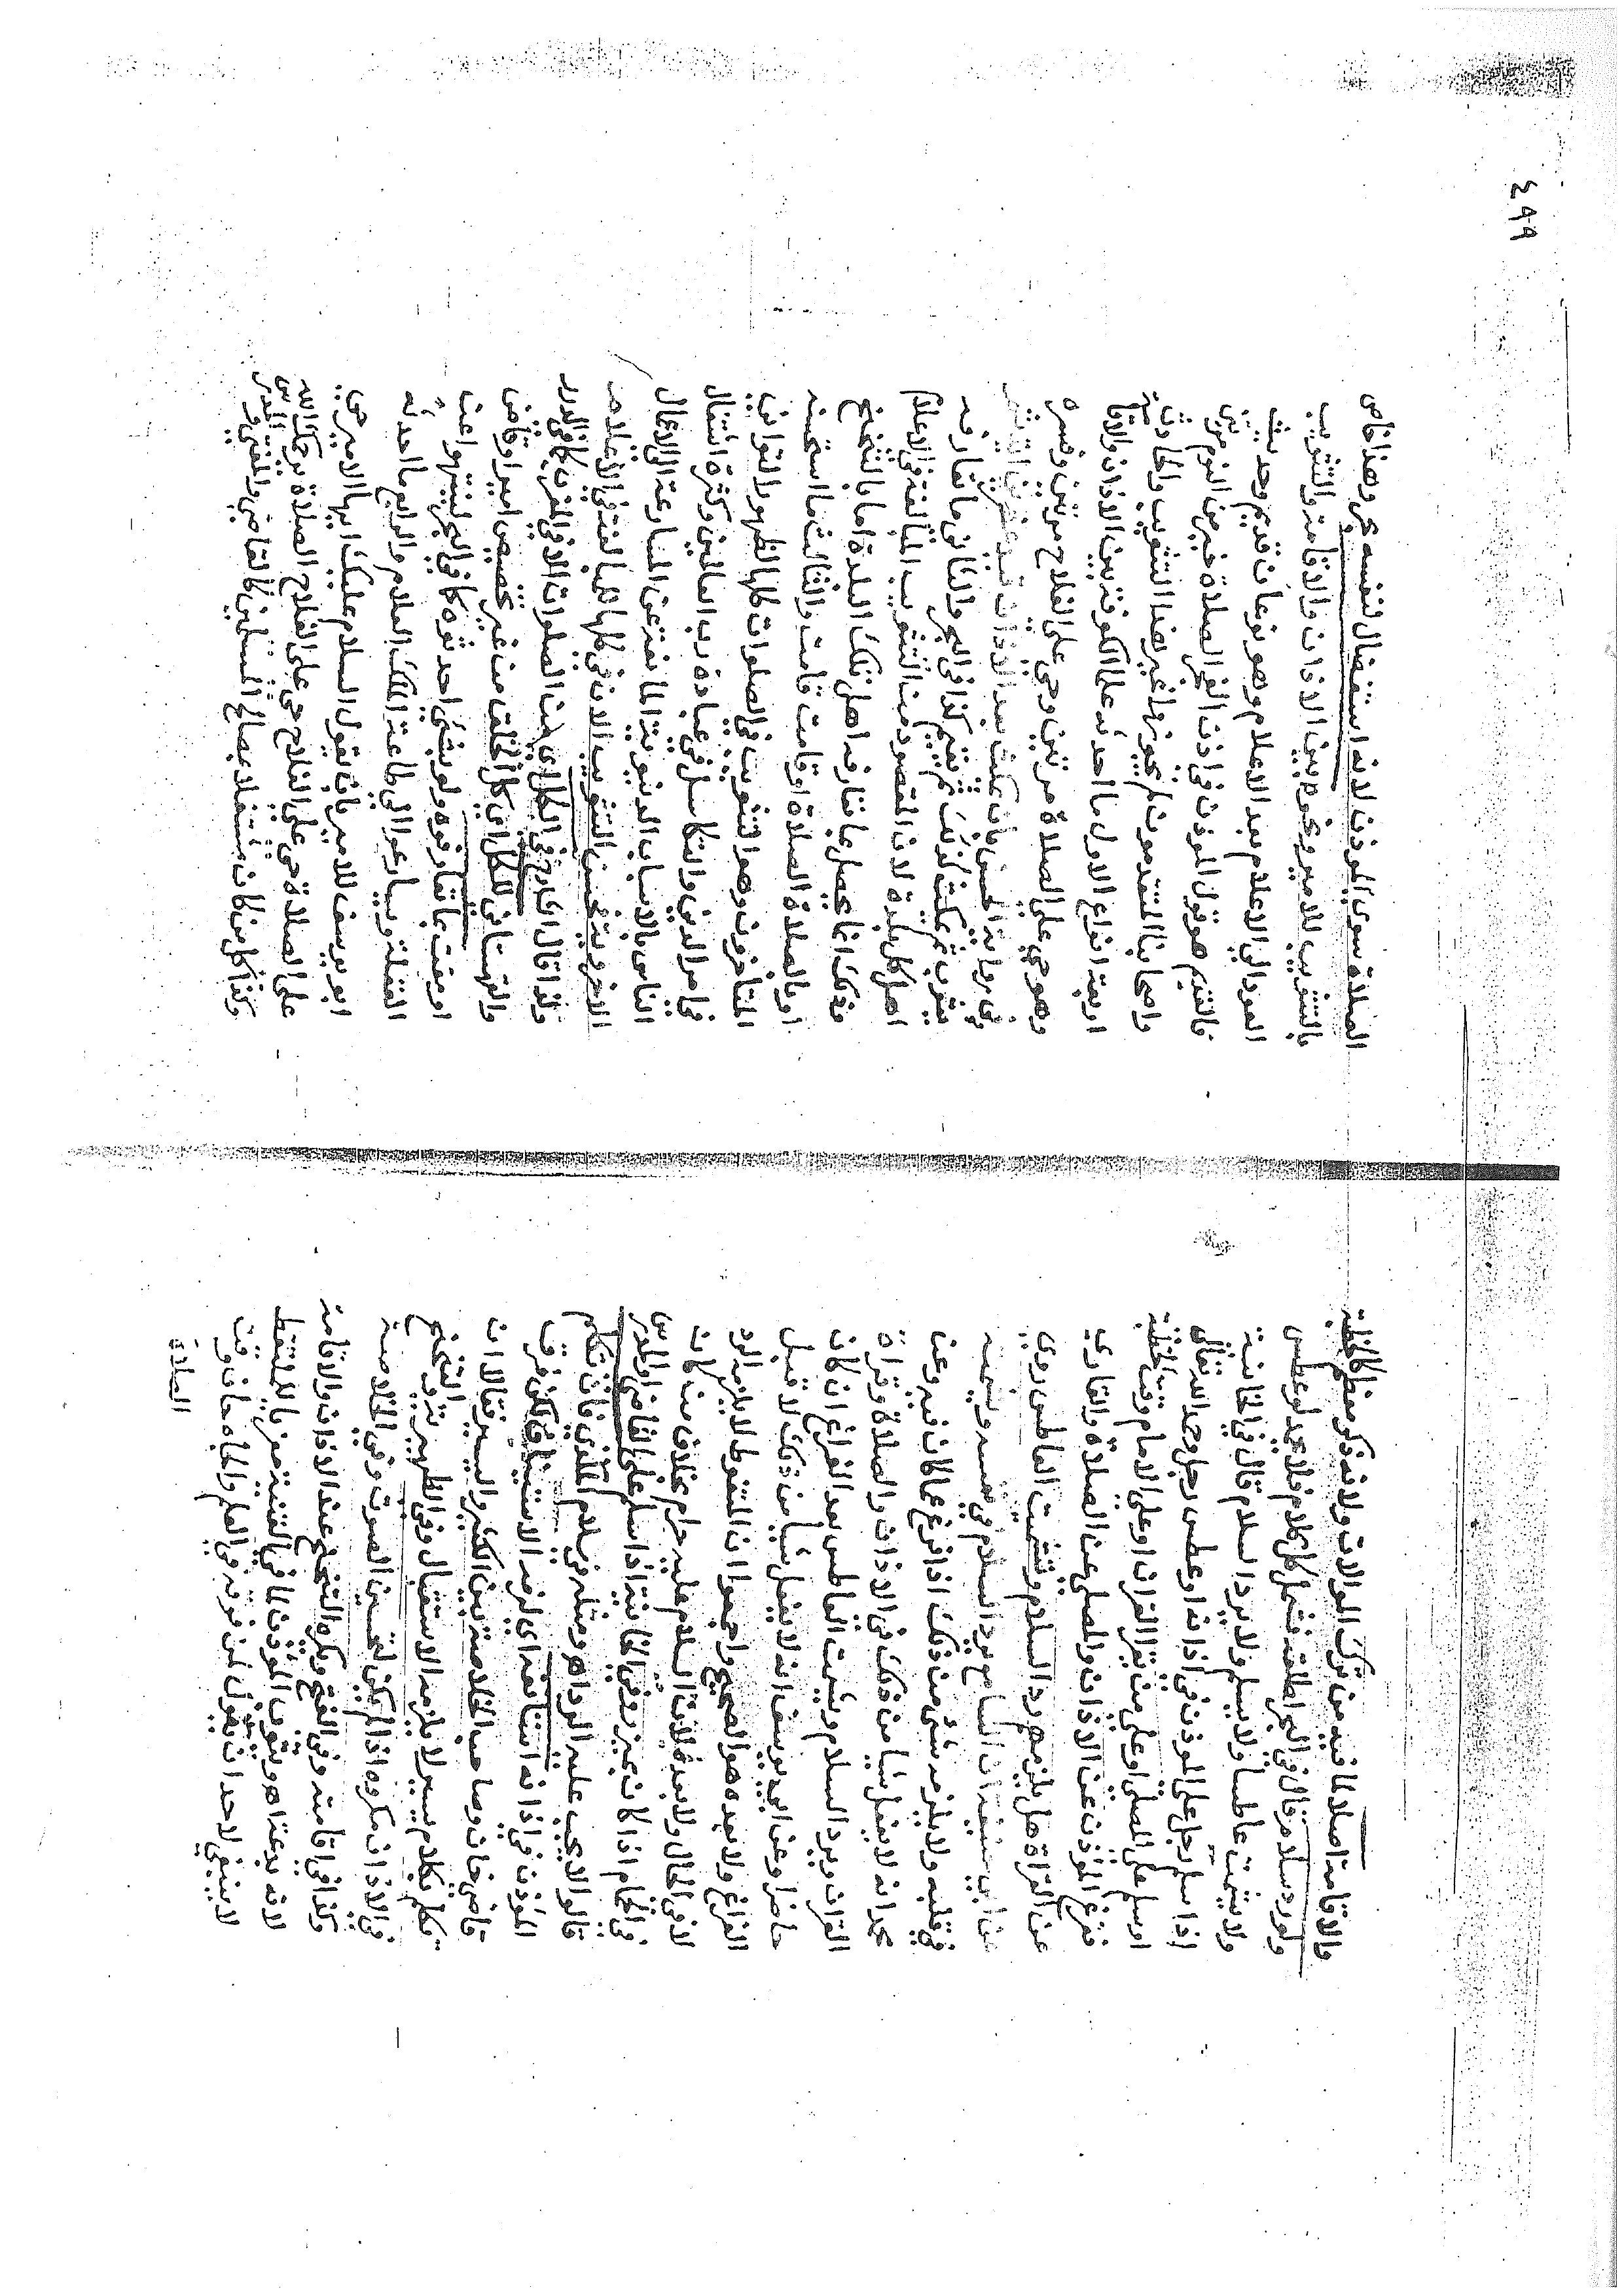 والاقامة اصلا لما فيه من ترك الموالات ولانه ذكر معظم كالخطبة
ولو رد سلام قال في البحر اطلقه فشمل كل كلام فلا يحمد لو عطس
ولا يشمت عاطسا ولا يسلم ولا يرد السلام قال في الخانية
اذا سلم رجل على المؤذن في اذانه او عطس رجل وحمد الله تعالى
او سلم على المصلي او على من يقرا القران او على الامام وقت الخطبة
ففرغ المؤذن عن الاذان والمصلي عن الصلاة والقاري
عن القراة هل يلزمهم رد السلام وتشميت العاطس روي
عن ابي حنيفة ان السامع يرد السلام في نفسه ويشمته
في قلبه ولا يلزمه شيء من ذلك اذا فرغ عما كان فيه وعن
محمد انه لا يفعل شيا من ذلك في الاذان والصلاة وقراة
القران ويرد السلام ويشمت العاطس بعد الفراغ ان كان
حاضرا وعن ابي يوسف انه لا يفعل شيا من ذلك لا قبل
الفراغ ولا بعده هو الصحيح واجمعوا ان المتغوط لا يلزمه الرد
لا في الحال ولا بعده لان السلام عليه حرام بخلاف من كان
في الحمام اذا كان بميزر وفي الخانية اذا سلم على القاضي او المدرس
قالوا لا يجب عليه الرد اهو ومثله في سلام المكدي فان تكلم
المؤذن في اذانه استانفه اي يلزمه الاستيناف لكن فرق
قاضي خان وصاحب الخلاصة بين الكثير واليسير فقالا ان
تكلم بكلام يسير لا يلزمه الاستقبال وفي الظهيرية والتنحنح
في الاذان مكروه اذا لم يكن لتحسين الصوت وفي الخلاصة
وكذا في اقامته وفي الفتح ويكره التنحنح عند الاذان والاقامة
لانه بدعة اهو المؤذن لما في القنية معزيا للملتقط
لا ينبغي لاحد ان يقول لمن فوقه في العلم والجاه حان وقت
الصلاة
٤٩٩
الصلاة سوى المؤذن لانه استفضال لنفسه بحر وهذا خاص
بالتثويب للامير ونحوه بين الاذان والاقامة والتثويب
العود الى الاعلام بعد الاعلام وهو نوعان قديم وحديث
فالقديم هو قول المؤذن في اذان الفجر الصلاة خير من النوم مرتين
واصحابنا المتقدمون لم يجوزوا غير هذا التثويب والحادث
اربعة انواع الاول ما احدثه علما الكوفة بين الاذان والاقامة
وهو حي على الصلاة مرتين وحي على الفلاح مرتين وفسره
في رواية الحسن بان يمكث بعد الاذان قدر عشرين اية ثم
يثوب ثم يمكث كذلك ثم يقيم كذا في البحر والثاني ما تعارفه
اهل كل بلدة لان المقصود من التثويب المبالغة في الاعلام
وذلك انما يحصل بما تعارفه اهل تلك البلدة اما بالتنحنح
او بالصلاة الصلاة او قامت قامت والثالث ما استحسنه
المتاخرون وهو التثويب في الصلوات كلها لظهور التواني
في امر الدين والتكاسل في عبادة رب العالمين وكثرة اشتغال
الناس بالاسباب الدنيوية المانعة عن المسارعة الى الاعمال
الاخروية فحسن التثويب الان في كلها للمبالغة في الاعلام
ولذا قال الكل اي كل الصلوات الا في المغرب كما في الدرر
والقهستاني للكل اي كل الخلق من غير تخصيص امير او قاض
او مفت بما تعارفوه ولو بشيء احدثوه كما في البحر لينتبهوا عن
الغفلة ويسارعوا الى طاعة الملك العلام والرابع ما احدثه
ابو يوسف للامير بان يقول السلام عليك ايها الامير حي
على الصلاة حي على الفلاح الصلاة يرحمك الله
وكذا كل من كان مشتغلا بمصالح المسلمين كالقاضي والمفتي والمدرس